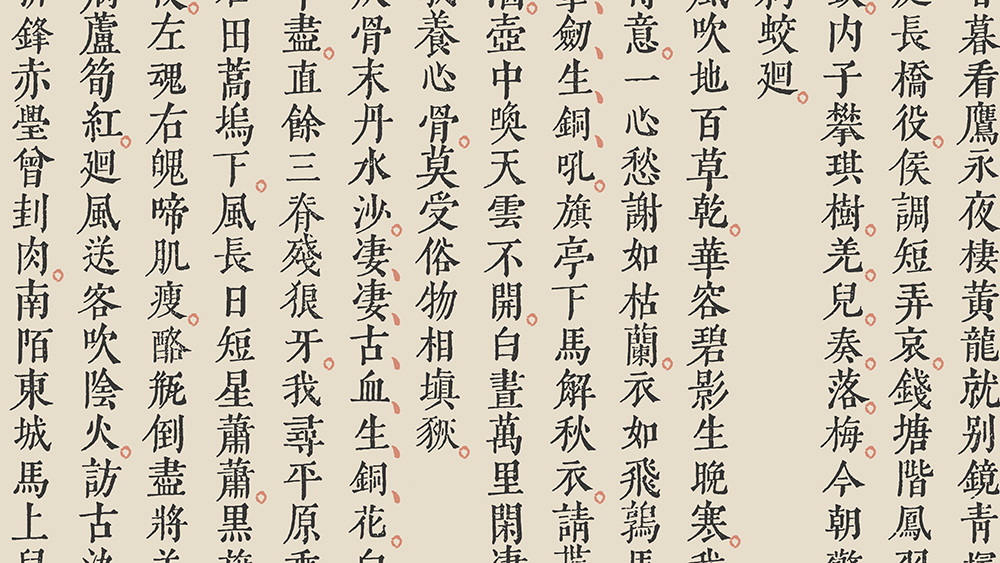 暮看鷹永夜棲黃龍就別鏡青
長橋役。侯調短弄哀。錢塘階鳳
内子攀琪樹。羌。兒。奏。落。梅。今朝
蛟廻。
吹地百草乾。華容碧影生晚寒。我
意。一心愁謝如枯蘭。衣如飛鶉馬
劒、生、銅、吼。旗亭下馬解秋衣。請
壺中喚天雲不開。白晝萬里閑凄
養心骨。莫受俗物相塡豥。
骨末丹水沙。凄、凄、古、血、生、銅、花。白
盡。直餘三脊殘狠牙。我尋平原乘
田蒿塢下。風長日短星蕭蕭。黑旗
左魂右魄啼肌瘦。酪甁倒盡將羊
蘆筍紅。廻風送客吹陰火。訪古
鋒赤璺曾刲肉。南陌東城馬上兒